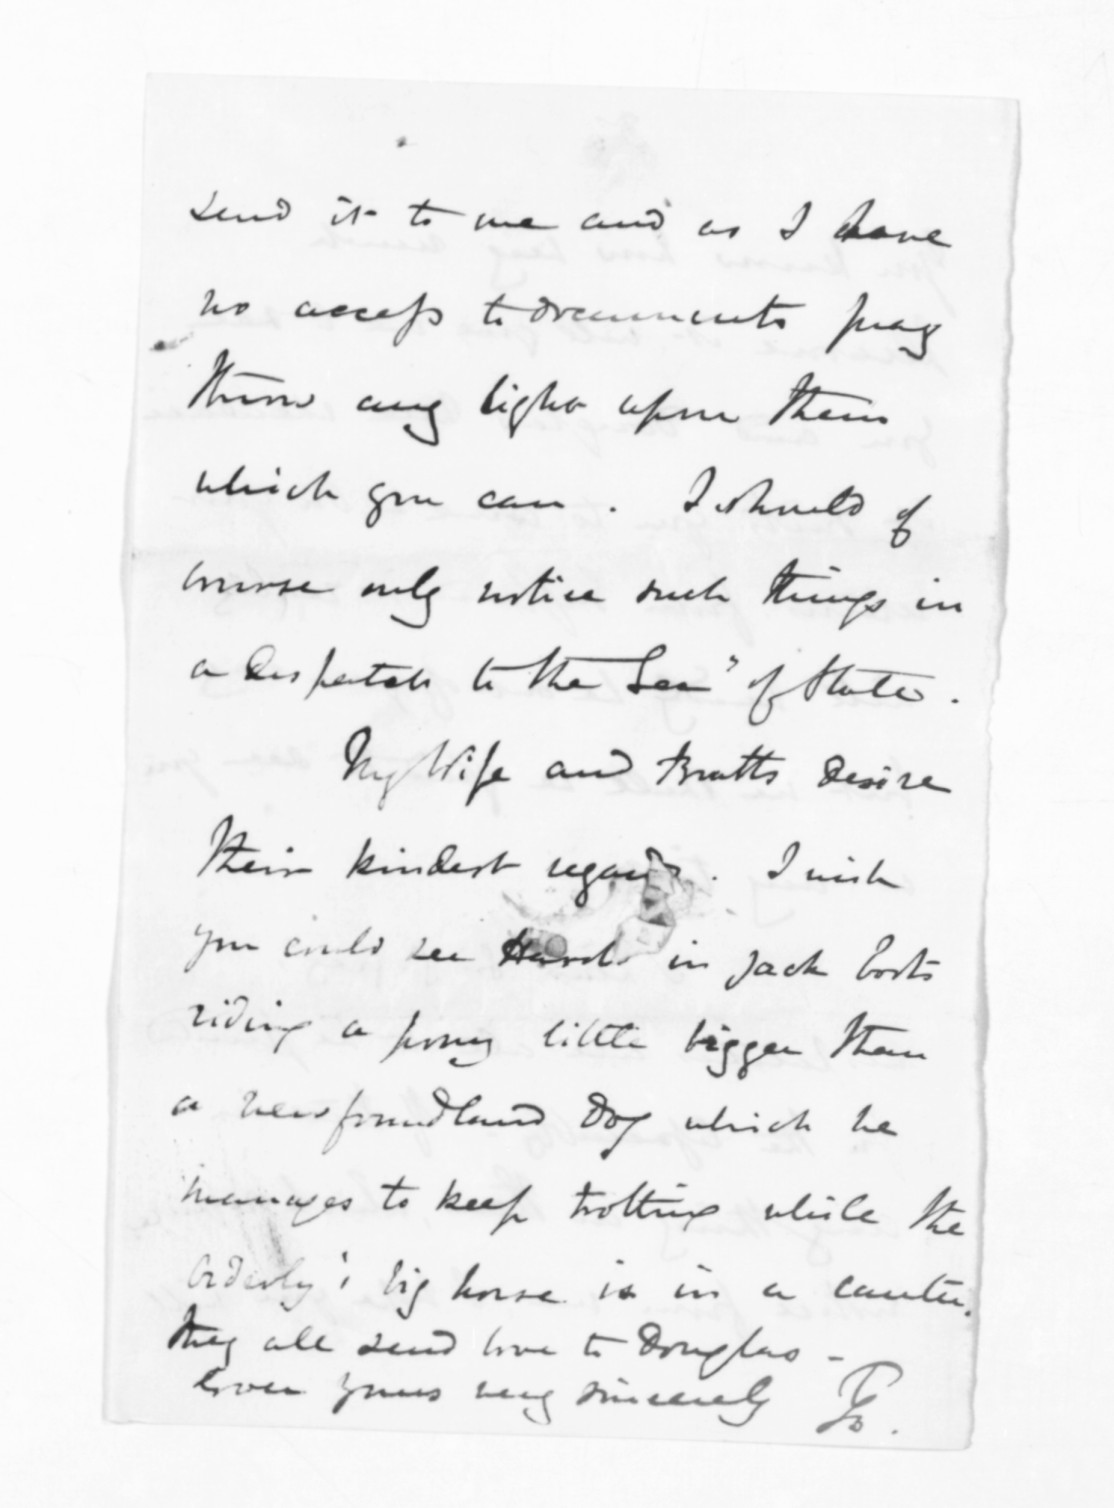 send it to me and as I have
no access to documents pray
throw any light upon them
which you can. I should of
course only notice such things in
a Despatch to the Secy of State.
My Wife and Bratts desire
their kindest regards. I wish
you could see Harold in jack boots
riding a pony little bigger than
a newfoundland Dog which he
manages to keep trotting while the
orderly's big horse is in a canter.
They all send love to Douglas -
Ever yours very sincerely